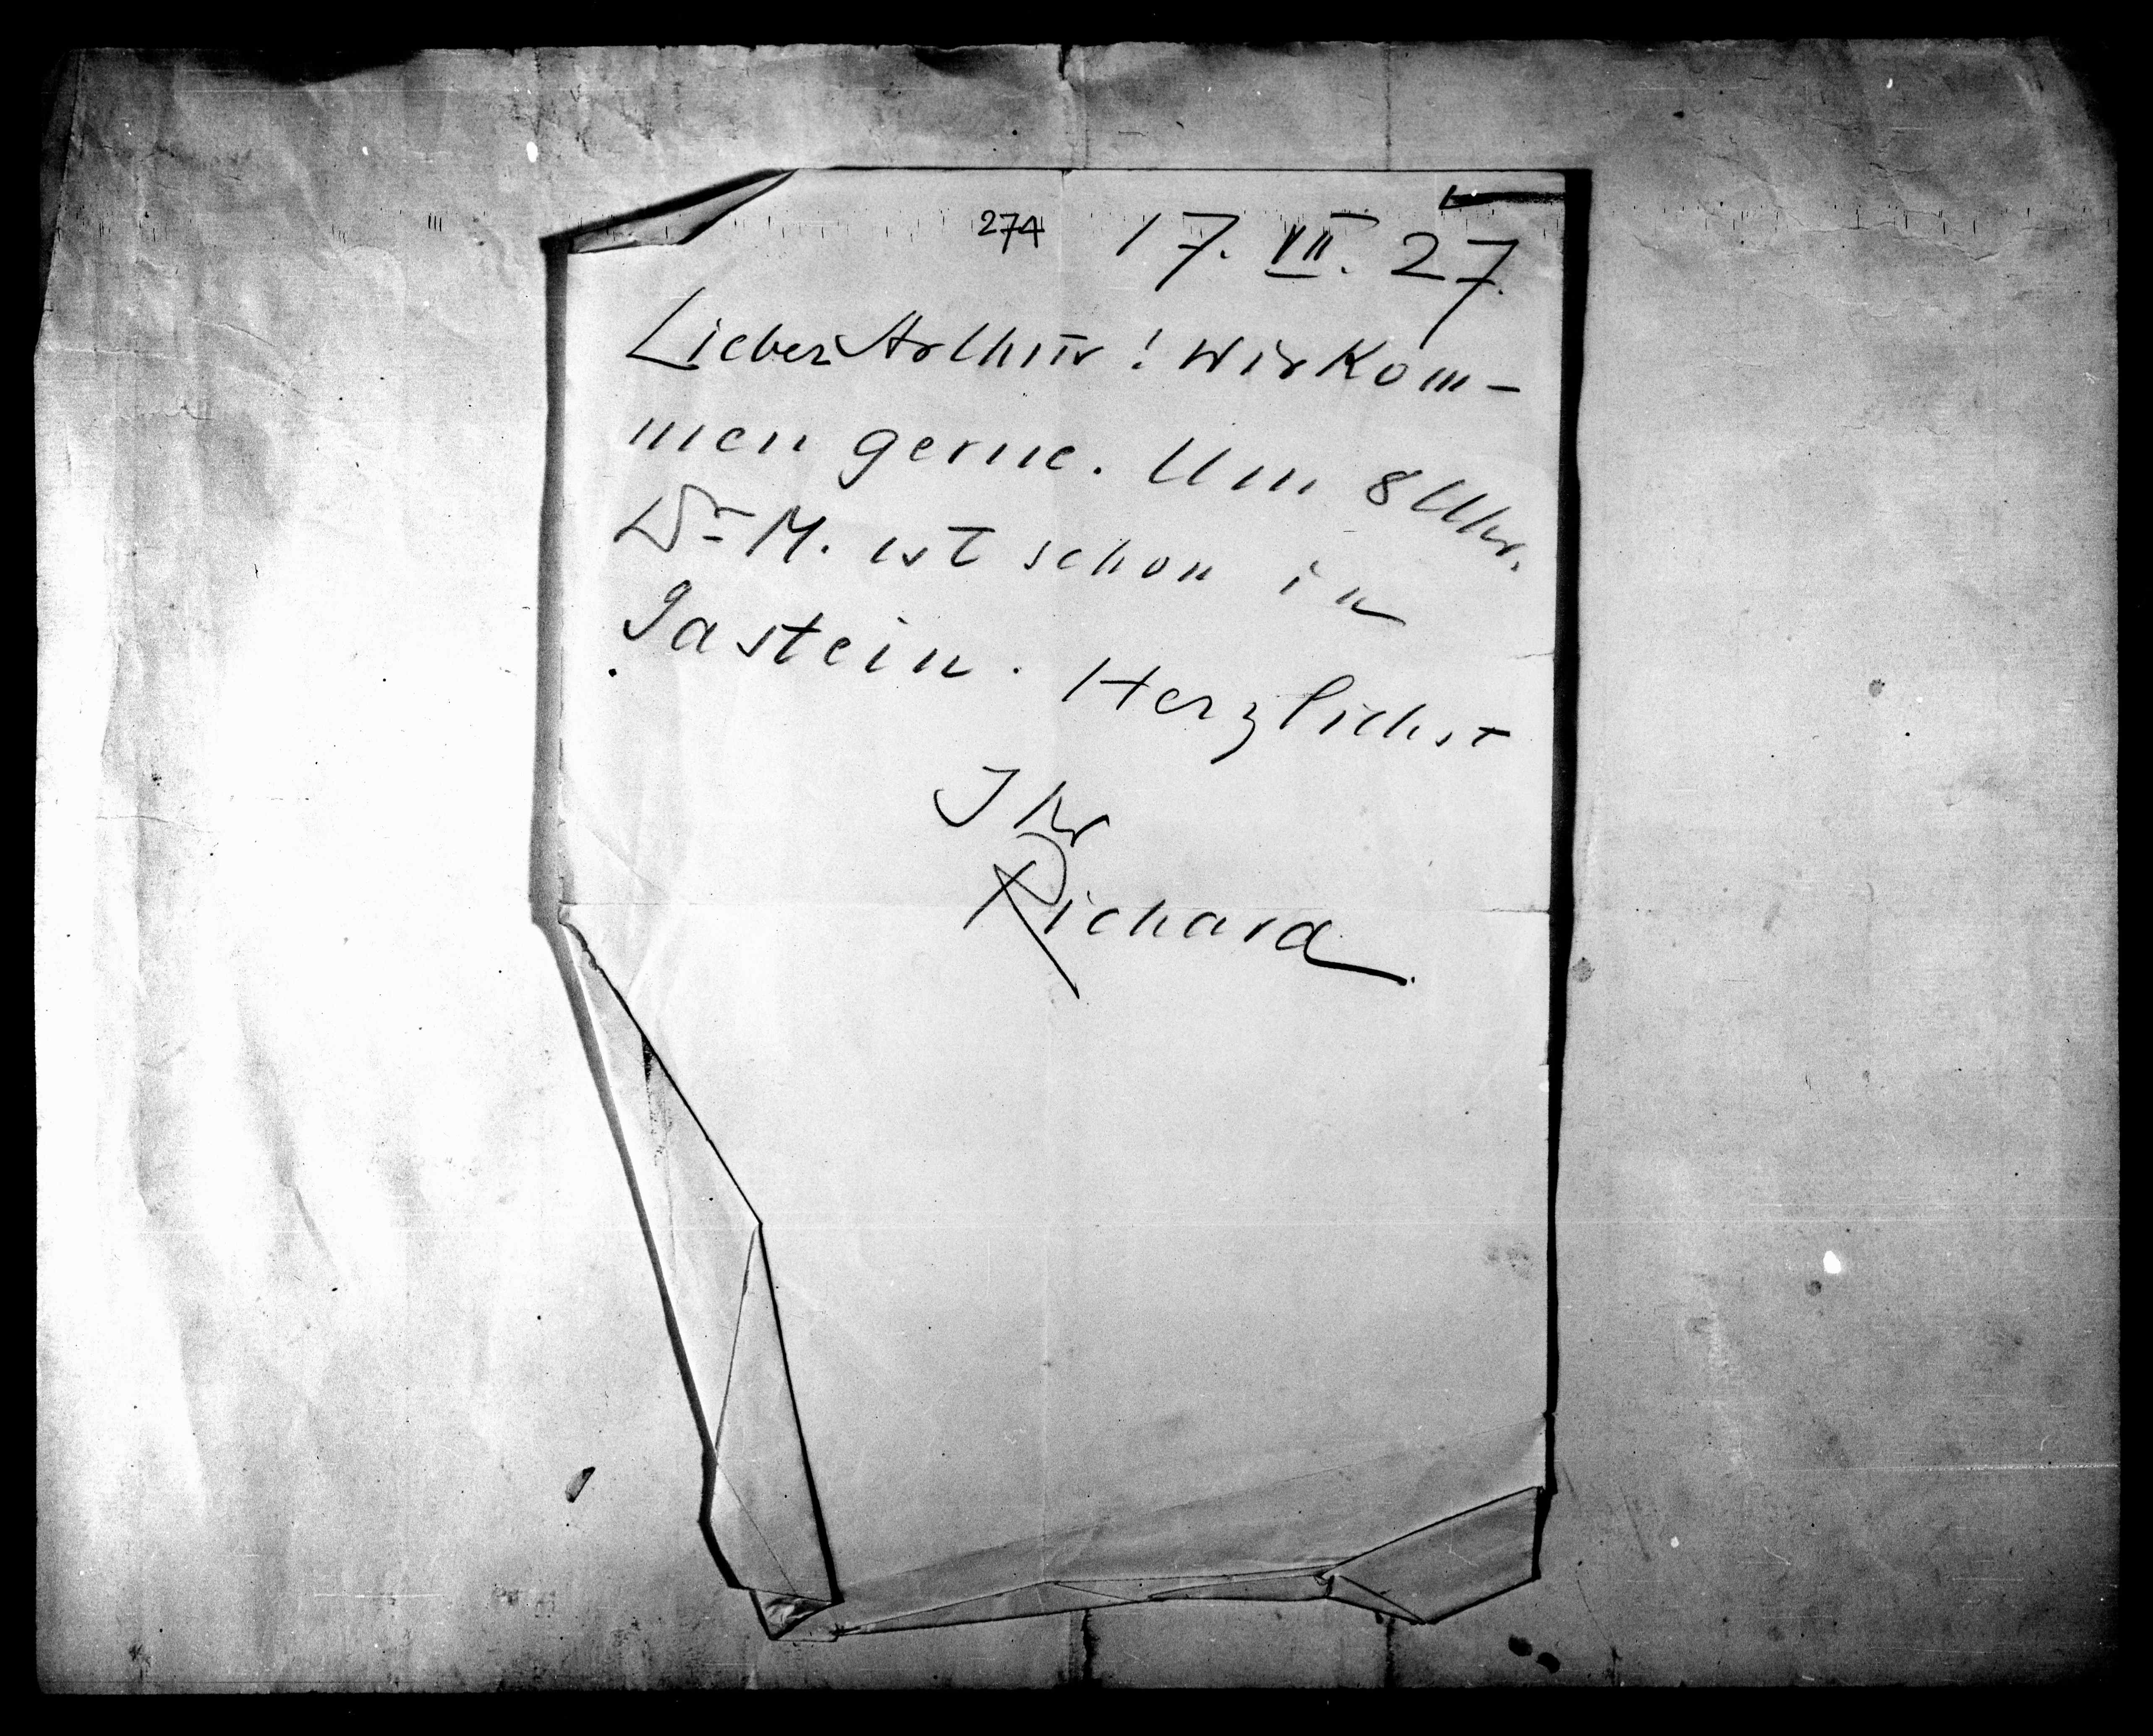 274 17. VII. 27.
Lieber Arthur! Wir kom-
men gerne. Um 8 Uhr.
Dr M. ist schon in
Gastein. Herzlichst
Ihr
Richard.